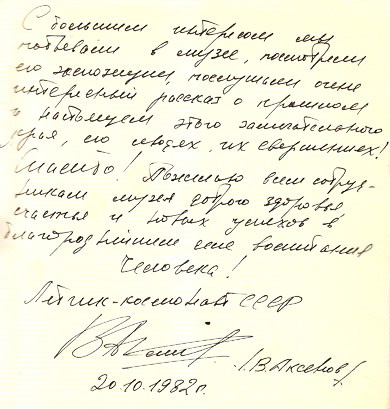 С большим интересом мы
побывали в музее, посмотрели
его экспозиции, послушали очень
интересный рассказ о прошлом
и настоящем этого замечательного
края, его людях, их свершениях!
Спасибо! Пожелаю всем сотруд-
никам музея доброго здоровья
счастья и новых успехов в
благороднейшем деле воспитания
Человека!
Лётчик-космонавт СССР
/В Аксенов/
20.10.1982 г.